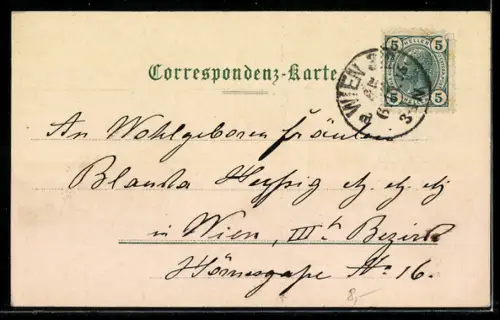 Correspondenz-Karte
5 HELLER 5
5 5
WIEN
An Wohlgeboren Fräulein
Blanka
in Wien, IIIter Bezirk
Hörnesgaße No 16.
8,-